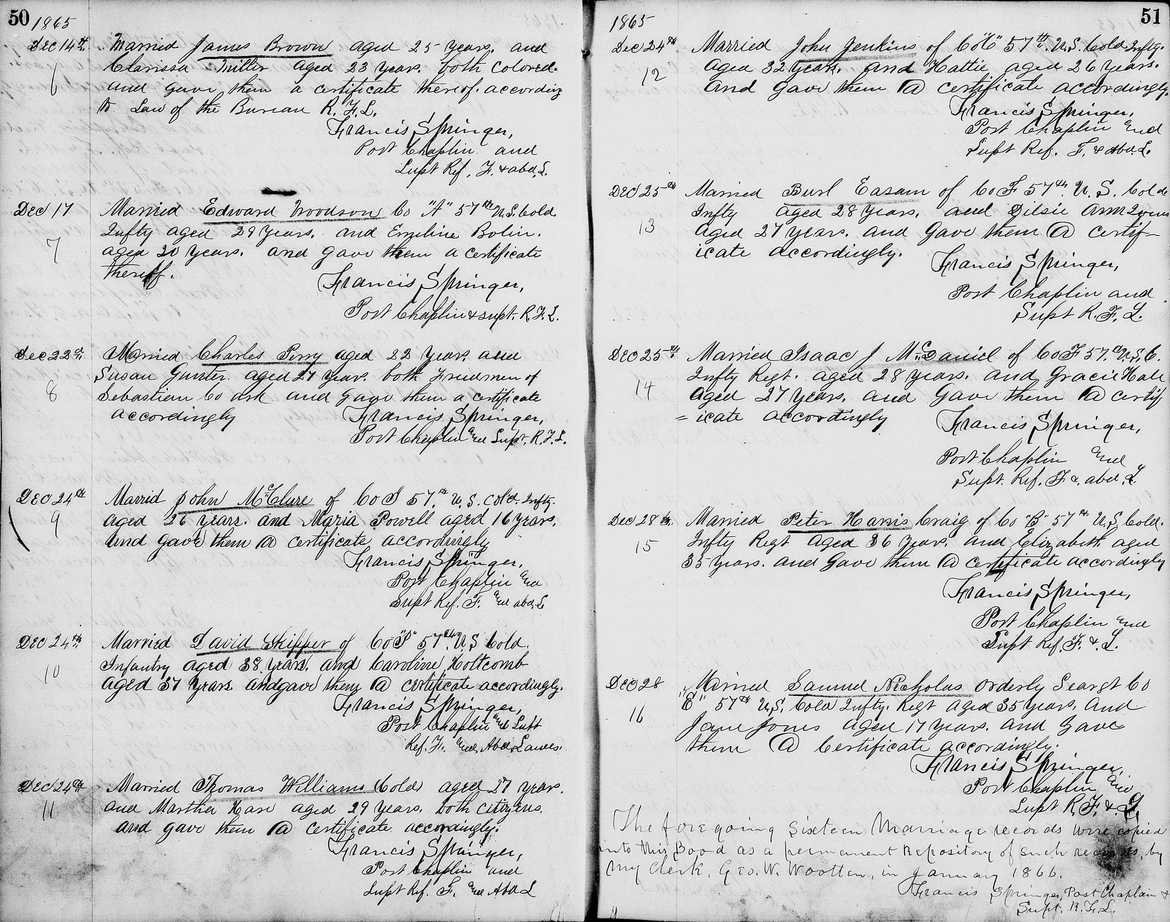 50
1865
Dec 14th Married James Brown aged 25 Years. and
6 Clarissa Miller aged 23 Years. both colored.
and gave them a certificate thereof. according
to Law of the Bureau R. F. L.
Francis Springer,
Post Chaplin and
Supt Ref. F. & abd. L.
Dec 17 Married Edward Woodson Co "A" 57th U.S. Cold.
7 Infty aged 29 Years. and Emiline Bolin.
aged 20 years. and gave them a certificate
thereoff.
Francis Springer,
Post Chaplin & supt. R. F. L.
Dec 22nd. Married Charles Perry aged 22 Years and
8 Susan Gunter. aged 27 Years. both Freedmen of
Sebastian Co Ark and gave them a certificate
accordingly
Francis Springer,
Post Chaplin and Supt. R. F. L.
Dec 24th Married John McClure of Co I 57th. U.S. Cold. Infty.
9 aged 26 Years. and Maria Powell aged 16 Years.
and gave them a certificate accordingly
Francis Springer,
Post Chaplin and
Supt Ref. F. and abd. L
Dec 24th. Married David Skipper of Co 57th. U.S Cold.
10 Infantry aged 38 Years. and Caroline Holtcomb
aged 37 Years. and gave them a certificate accordingly.
Francis Springer,
Post Chaplin and Supt
Ref. F. and. Abd. Lands.
Dec 24th Married Thomas Williams Cold aged 27 years.
11 and Martha Hare aged 29 Years. both citizens.
and gave them a certificate accordingly.
Francis Springer,
Post Chaplin and
Supt Ref. F. and Abd. L
51
1865
Dec 24th Married John Jenkins of Co "C" 57th. U.S. Cold Infty.
12 aged 32 Years. and Hattie aged 26 Years.
and gave them a certificate accordingly.
Francis Springer,
Post Chaplin and
Supt Ref. F. & Abd. L.
Dec 25th Married Burl Easam of Co F 57th U. S. Cold
13 Infty aged 28 Years. and Dilsie
aged 27 years. and gave them a certif-
icate accordingly.
Francis Springer,
Post Chaplin and
Supt R. F. L
Dec 25th Married Isaac J McDaniel of Co F 57th. U.S. C.
14 Infty Regt. aged 28 Years. and Gracie Hall
aged 27 Years. and gave them a certif
=icate accordingly
Francis Springer,
Post Chaplin and
Supt. Ref. F & abd. L
Dec 28th. Married Peter Harris Craig of Co "B" 57th U.S. Cold.
15 Infty Regt aged 36 Years. and Elizabeth aged
35 Years. and gave them a certificate accordingly
Francis Springer,
Post Chaplin and
Supt Ref. F. & L.
Dec 28 Married Samuel Nicholas Orderly Seargt Co
16 "E" 57th U.S. Cold Infty. Regt aged 35 Years. and
Jane Jones aged 17 Years. and gave
them a Certificate accordingly.
Francis Springer,
Post Chaplin and
Supt R. F. & L.
The foregoing sixteen Marriage records were copied
into this Book as a permanent repository of such records, by
my Clerk, Geo. W. Wootten, in January 1866.
Francis Springer, Post Chaplain &
Supt. R. F. L.